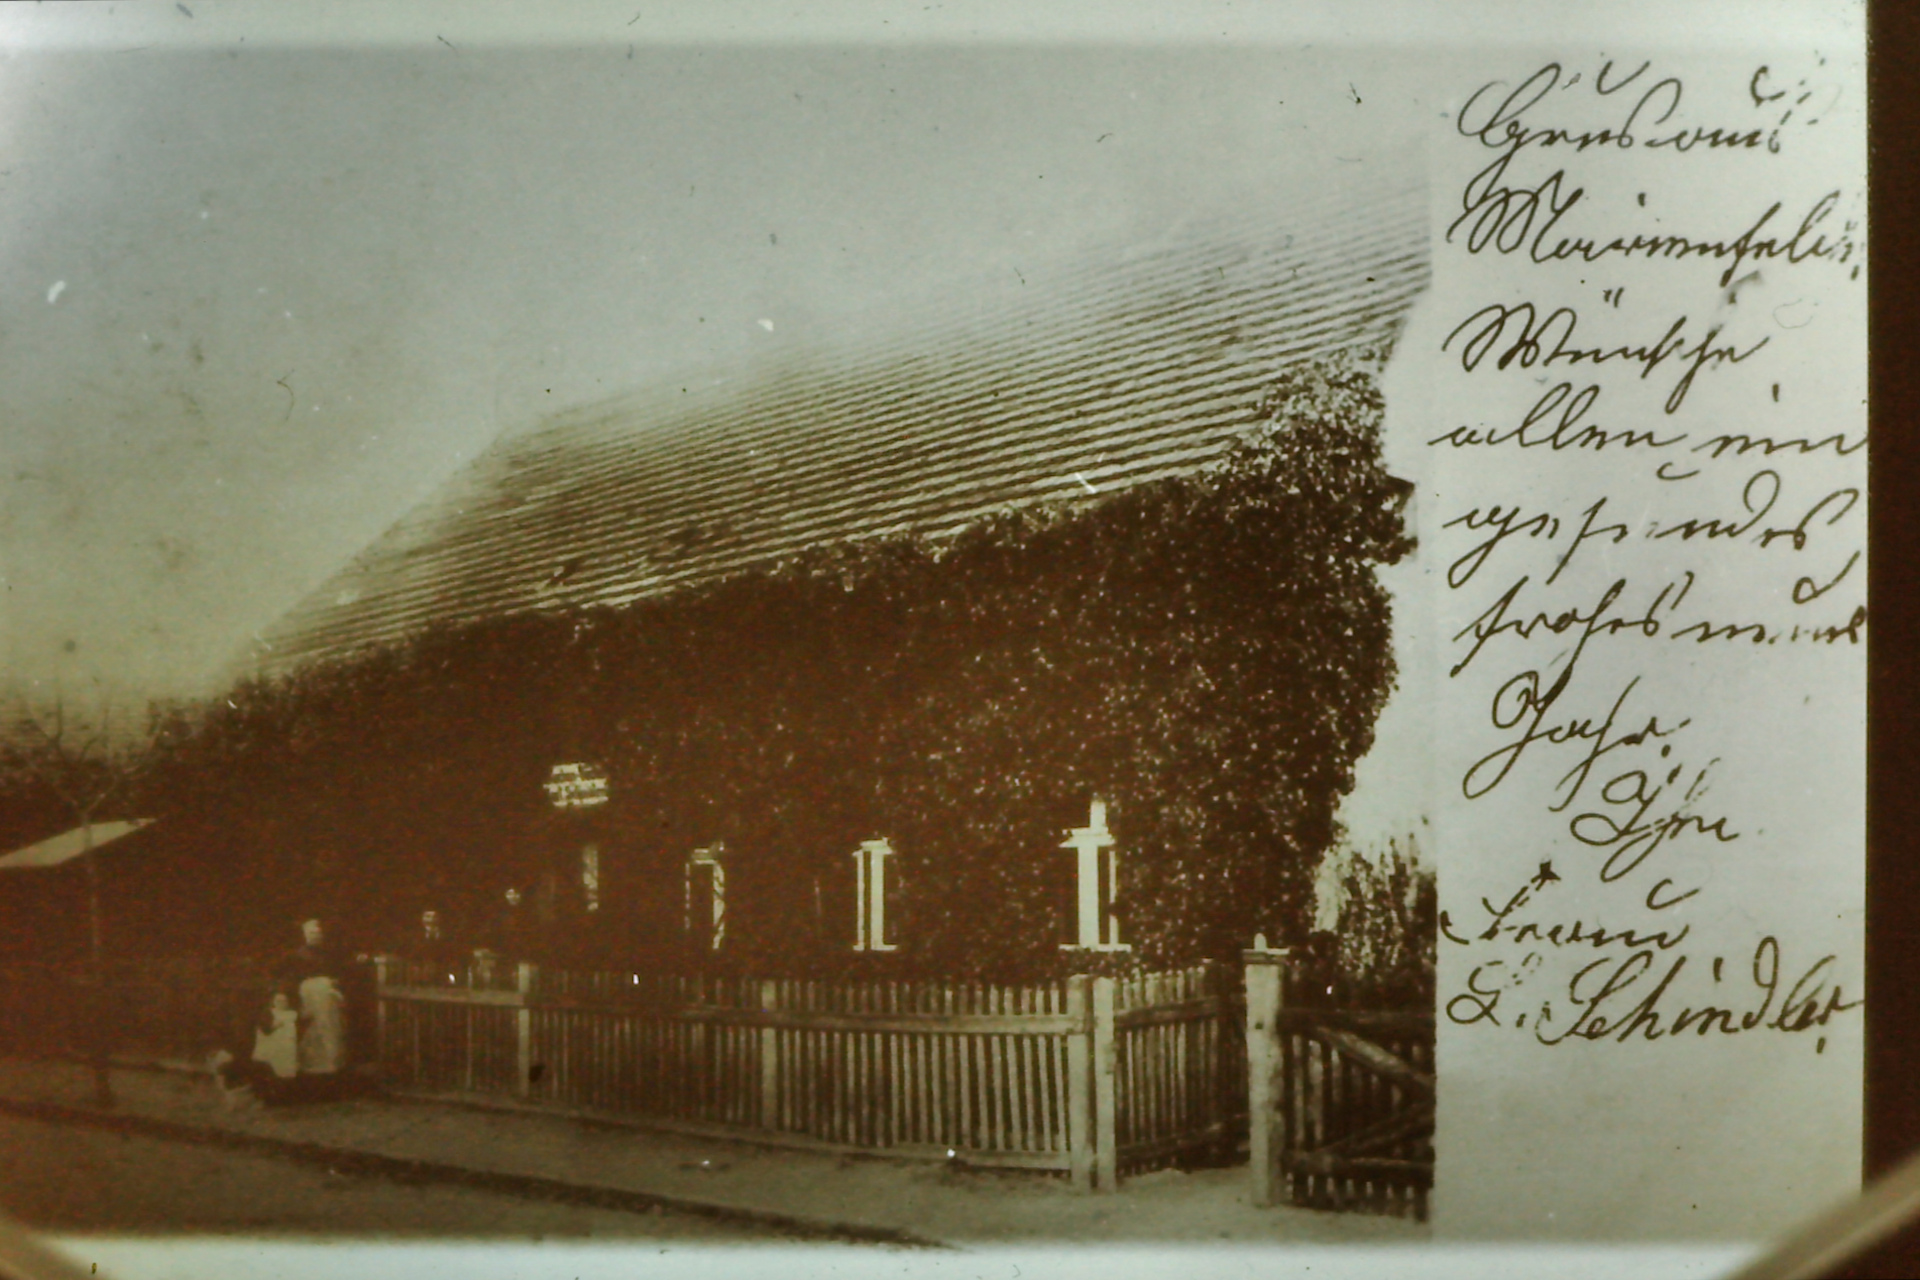 Grus aus
Marienfelde.
Wünsche
allen ein
gesundes
frohes neues
Jahr.
Ihre
Frau
L. Schindler.